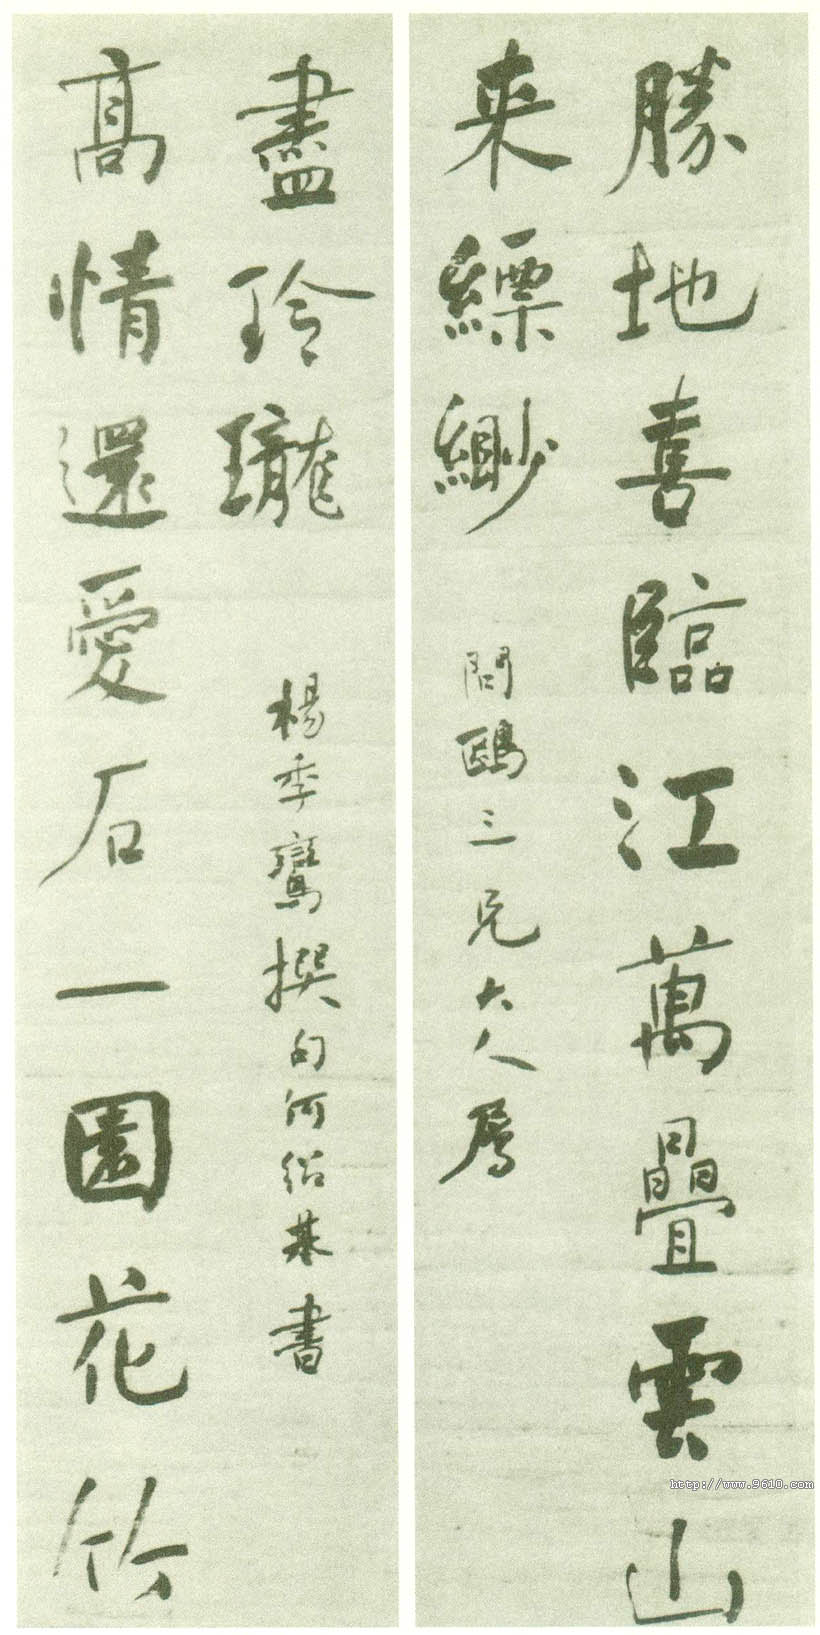 勝地喜臨江萬疊雲山
来縹緲
問鷗三兄大人屬
高情還愛石一園花竹
盡玲瓏
楊季鸞撰句何紹基書
http://www.9610.com